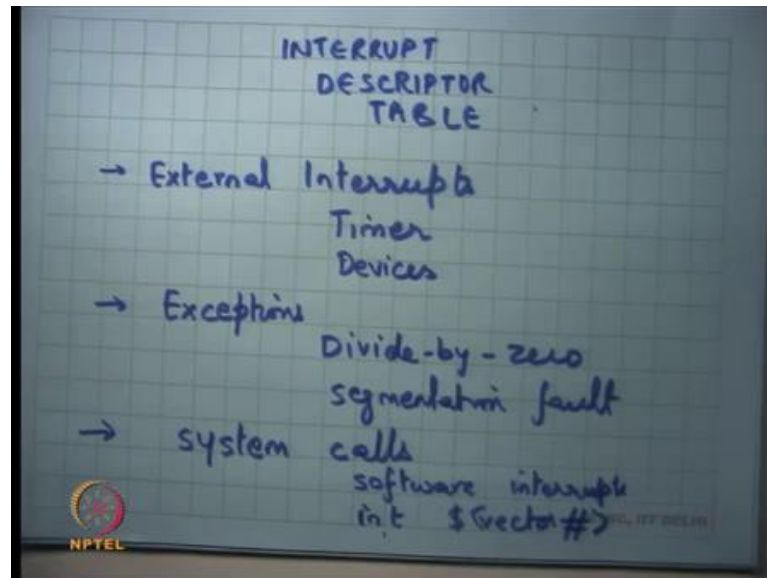 INTERRUPT
DESCRIPTOR
TABLE
→ External Interrupts
Timer
Devices
→ Exceptions
Divide-by-zero
segmentation fault
→ system calls
software interrupts
int $<vector#>
IIT DELHI
NPTEL